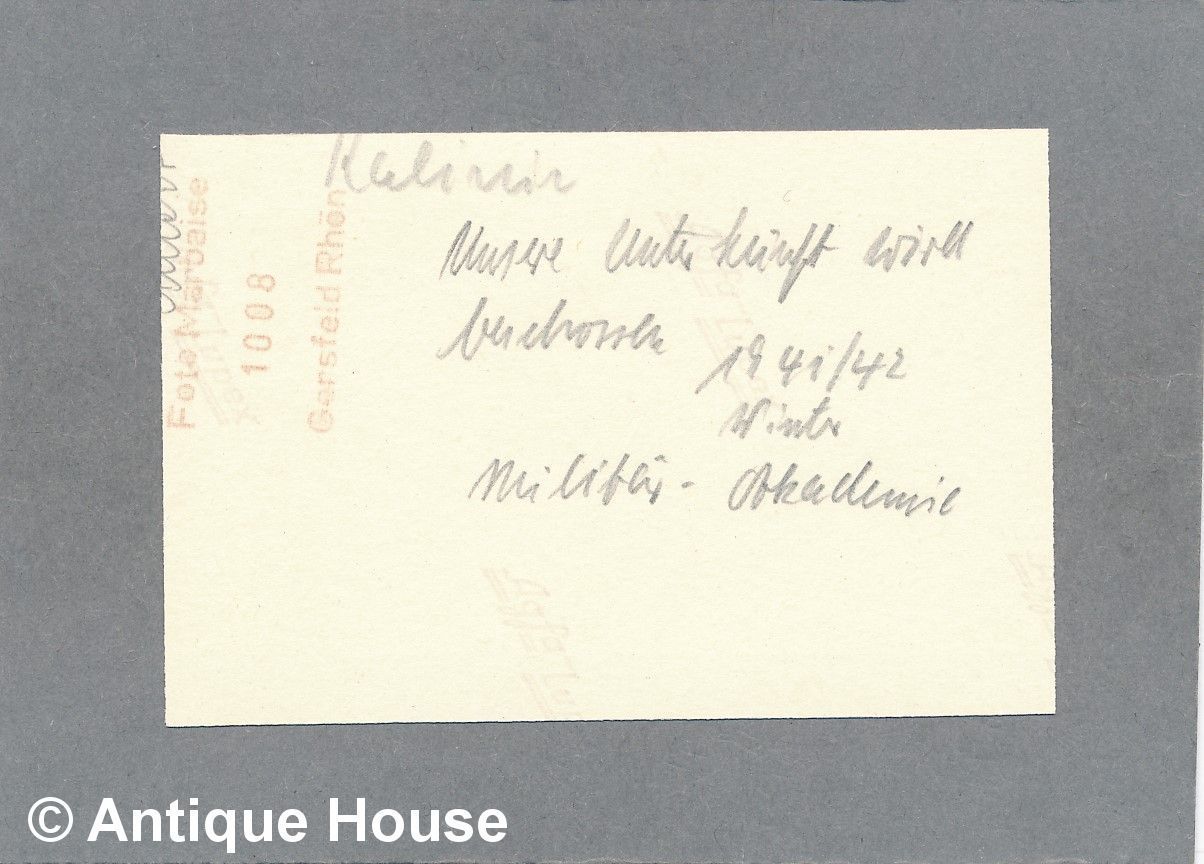 Kalinin
Unsere Unterkunft wird
beschossen
1941/42
Winter
Militär-Akademie
Foto Marbaise
1008
Gersfeld Rhön
© Antique House